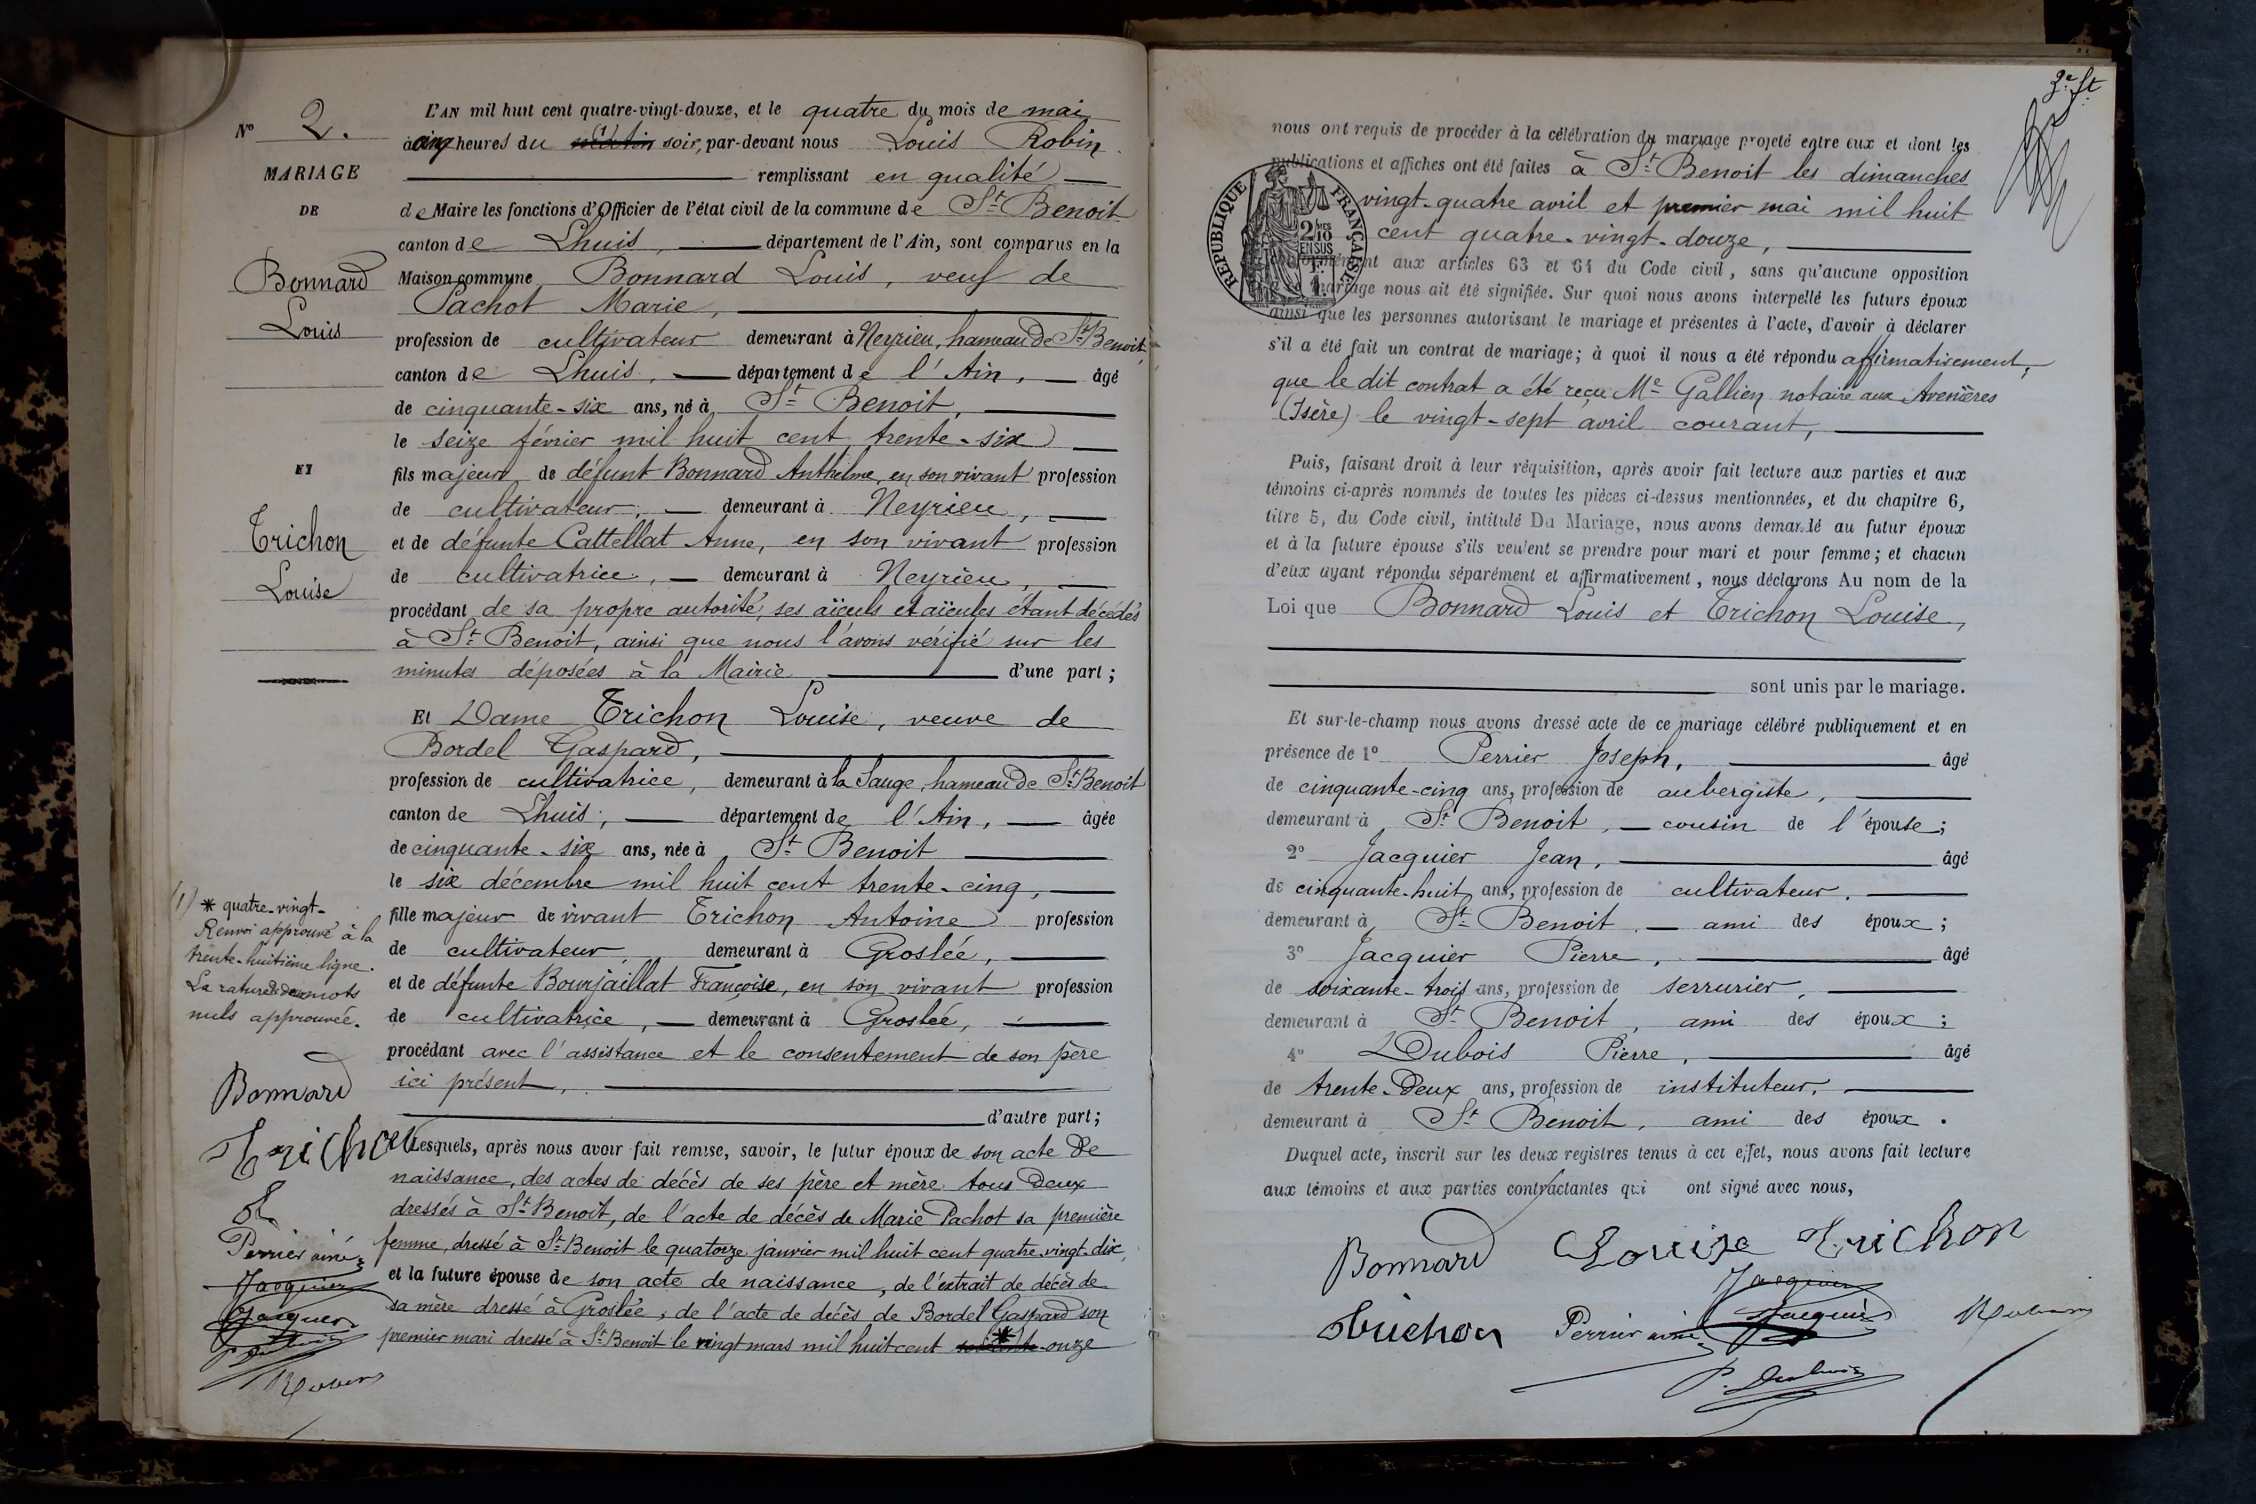 N° 2.
MARIAGE
DE
Bonnard
Louis
ET
Trichon
Louise
(1) * quatre-vingt-
Renvoi approuvé à la
trente-huitième ligne.
La rature de deux mots
nuls approuvée.
Bonnard
Trichon
Perrier aîné
Jacquier
Jacquier
P. Dubois
Robin
L'AN mil huit cent quatre-vingt-douze, et le quatre du mois de mai
à cinq heures du matin soir, par-devant nous Louis Robin
remplissant en qualité
de Maire les fonctions d'Officier de l'état civil de la commune de St Benoit
canton de Lhuis, département de l'Ain, sont comparus en la
Maison commune Bonnard Louis, veuf de
Pachot Marie,
profession de cultivateur demeurant à Neyrieu, hameau de St Benoit,
canton de Lhuis, département de l'Ain, âgé
de cinquante-six ans, né à St Benoit,
le seize février mil huit cent trente-six
fils majeur de défunt Bonnard Anthelme, en son vivant profession
de cultivateur, demeurant à Neyrieu,
et de défunte Cattellat Anne, en son vivant profession
de cultivatrice, demeurant à Neyrieu,
procédant de sa propre autorité, ses aïeuls et aïeules étant décédés
à St Benoit, ainsi que nous l'avons vérifié sur les
minutes déposées à la Mairie d'une part;
Et Dame Trichon Louise, veuve de
Bordel Gaspard,
profession de cultivatrice, demeurant à la Sauge, hameau de St Benoit
canton de Lhuis, département de l'Ain, âgée
de cinquante-six ans, née à St Benoit
le six décembre mil huit cent trente-cinq,
fille majeur de vivant Trichon Antoine profession
de cultivateur, demeurant à Groslée,
et de défunte Bourjaillat Françoise, en son vivant profession
de cultivatrice, demeurant à Groslée,
procédant avec l'assistance et le consentement de son père
ici présent,
d'autre part;
Lesquels, après nous avoir fait remise, savoir, le futur époux de son acte de
naissance, des actes de décès de ses père et mère tous deux
dressés à St Benoit, de l'acte de décès de Marie Pachot sa première
femme, dressé à St Benoit le quatorze janvier mil huit cent quatre-vingt-dix,
et la future épouse de son acte de naissance, de l'extrait de décès de
sa mère dressé à Groslée, de l'acte de décès de Bordel Gaspard son
premier mari dressé à St Benoit le vingt mars mil huit cent * soixante-onze
2e St
nous ont requis de procéder à la célébration du mariage projeté entre eux et dont les
publications et affiches ont été faites à St Benoit les dimanches
vingt-quatre avril et premier mai mil huit
cent quatre-vingt-douze,
conformément aux articles 63 et 64 du Code civil, sans qu'aucune opposition
mariage nous ait été signifiée. Sur quoi nous avons interpellé les futurs époux
ainsi que les personnes autorisant le mariage et présentes à l'acte, d'avoir à déclarer
s'il a été fait un contrat de mariage; à quoi il nous a été répondu affirmativement,
que le dit contrat a été reçu Me Gallien notaire aux Avenières
(Isère) le vingt-sept avril courant,
RÉPUBLIQUE FRANÇAISE
2/10es
EN SUS
1F.
Puis, faisant droit à leur réquisition, après avoir fait lecture aux parties et aux
témoins ci-après nommés de toutes les pièces ci-dessus mentionnées, et du chapitre 6,
titre 5, du Code civil, intitulé Du Mariage, nous avons demandé au futur époux
et à la future épouse s'ils veulent se prendre pour mari et pour femme; et chacun
d'eux ayant répondu séparément et affirmativement, nous déclarons Au nom de la
Loi que Bonnard Louis et Trichon Louise,
sont unis par le mariage.
Et sur-le-champ nous avons dressé acte de ce mariage célébré publiquement et en
présence de 1° Perrier Joseph, âgé
de cinquante-cinq ans, profession de aubergiste,
demeurant à St Benoit, cousin de l'épouse;
2° Jacquier Jean, âgé
de cinquante-huit ans, profession de cultivateur,
demeurant à St Benoit, ami des époux;
3° Jacquier Pierre, âgé
de soixante-trois ans, profession de serrurier,
demeurant à St Benoit, ami des époux;
4° Dubois Pierre, âgé
de trente-deux ans, profession de instituteur,
demeurant à St Benoit, ami des époux.
Duquel acte, inscrit sur les deux registres tenus à cet effet, nous avons fait lecture
aux témoins et aux parties contractantes qui ont signé avec nous,
Bonnard Louise Trichon
Jacquier
Trichon Perrier aîné Jacquier Robin
P. Dubois